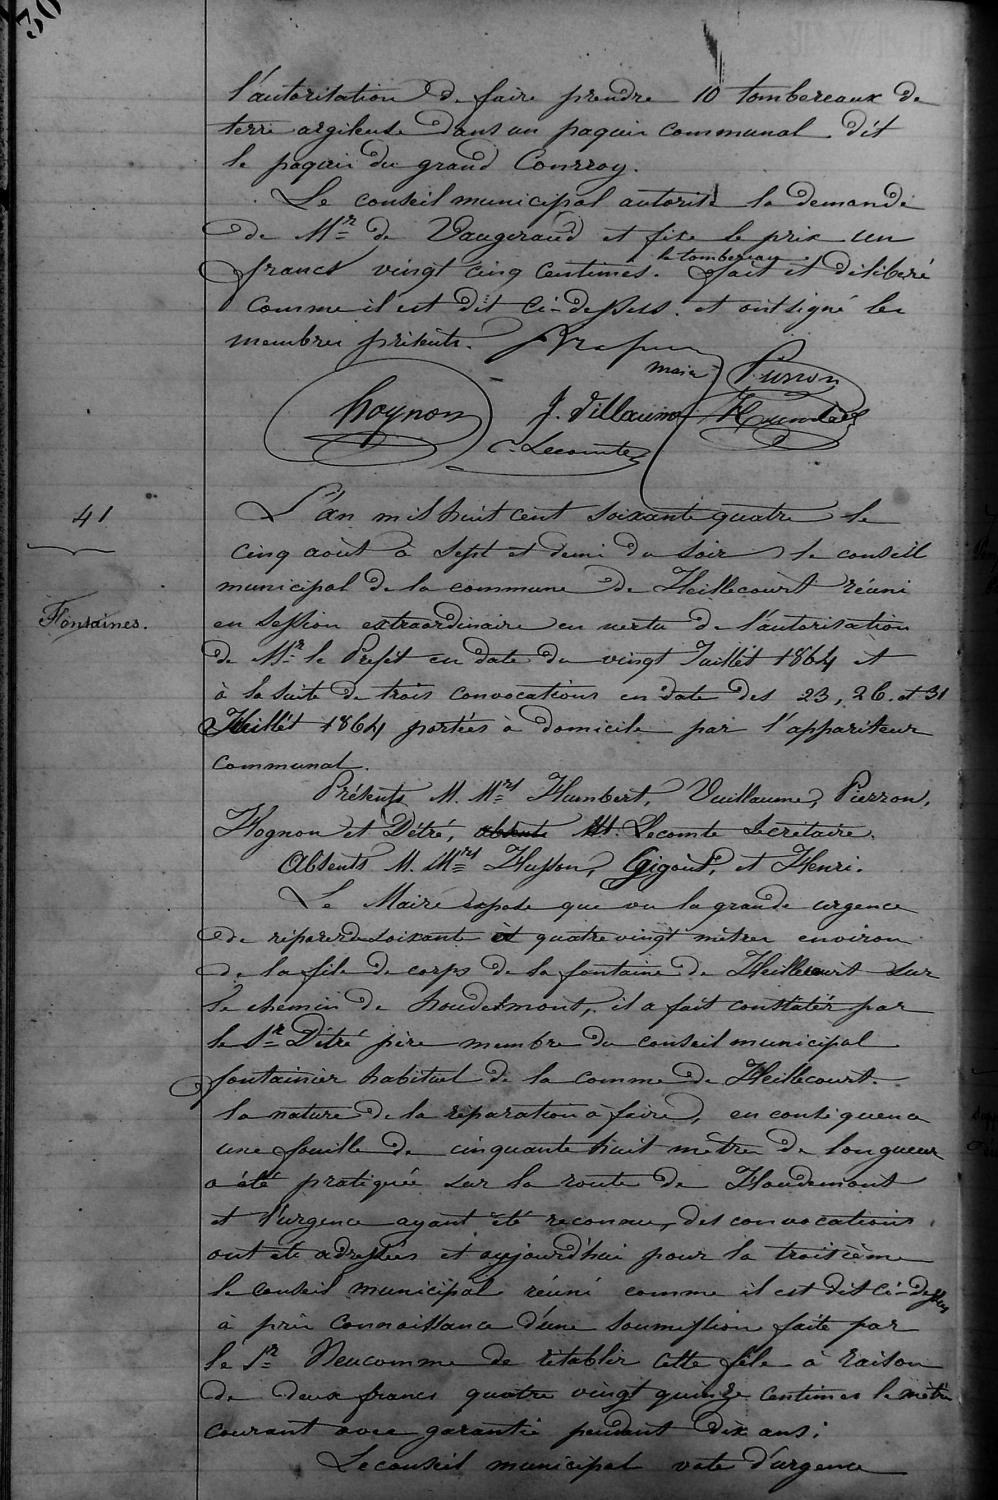 l'autorisation de faire prendre 10 tombereaux de
terre argileuse dans un paquis communal dit
le paquis du grand Courroy.
Le conseil municipal autorise la demande
de Mr de Vaugeraud et fixe le prix un
francs vingt cinq centimes le tombereau. fait et délibéré
comme il est dit ci-dessus. et ont signé les
membres présents.
maire Pierron
hognon J. Villaume
C. Lecomte
41
L'an mil huit cent soixante quatre le
cinq août à sept et demi du soir, le conseil
municipal de la commune de Heillecourt réuni
en session extraordinaire en vertu de l'autorisation
Fontaines.
de Mr le Préfet en date du vingt Juillet 1864 et
à la suite de trois convocations en date des 23, 26. et 31
Juillet 1864 portées à domicile par l'appariteur
communal.
Présents M. Mrs Humbert, Vuillaume, Pierron,
Hognon et Détré, absents M. Lecomte Secrétaire.
Absents M. Mrs Husson, Gigout, et Henri.
Le Maire expose que vu la grande urgence
de réparer de soixante et quatre vingt mètres environ
de la file de corps de la fontaine de Heillecourt sur
le chemin de houdemont, il a fait constater par
le Sr Détré père membre du conseil municipal
fontainier habituel de la comme de Heillecourt.
la nature de la réparation à faire, en conséquence
une fouille de cinquante huit mètres de longueur
a été pratiquée sur la route de Houdemont
et l'urgence ayant été reconnue, des convocations
ont été adressées et aujourd'hui pour la troisième
le conseil municipal réuni comme il est dit ci-dessus
a pris connaissance d'une soumission faite par
le Sr Neucomme de rétablir cette file à raison
de deux francs quatre vingt quinze centimes le mètre
courant avec garantie pendant dix ans;
Le conseil municipal vote d'urgence